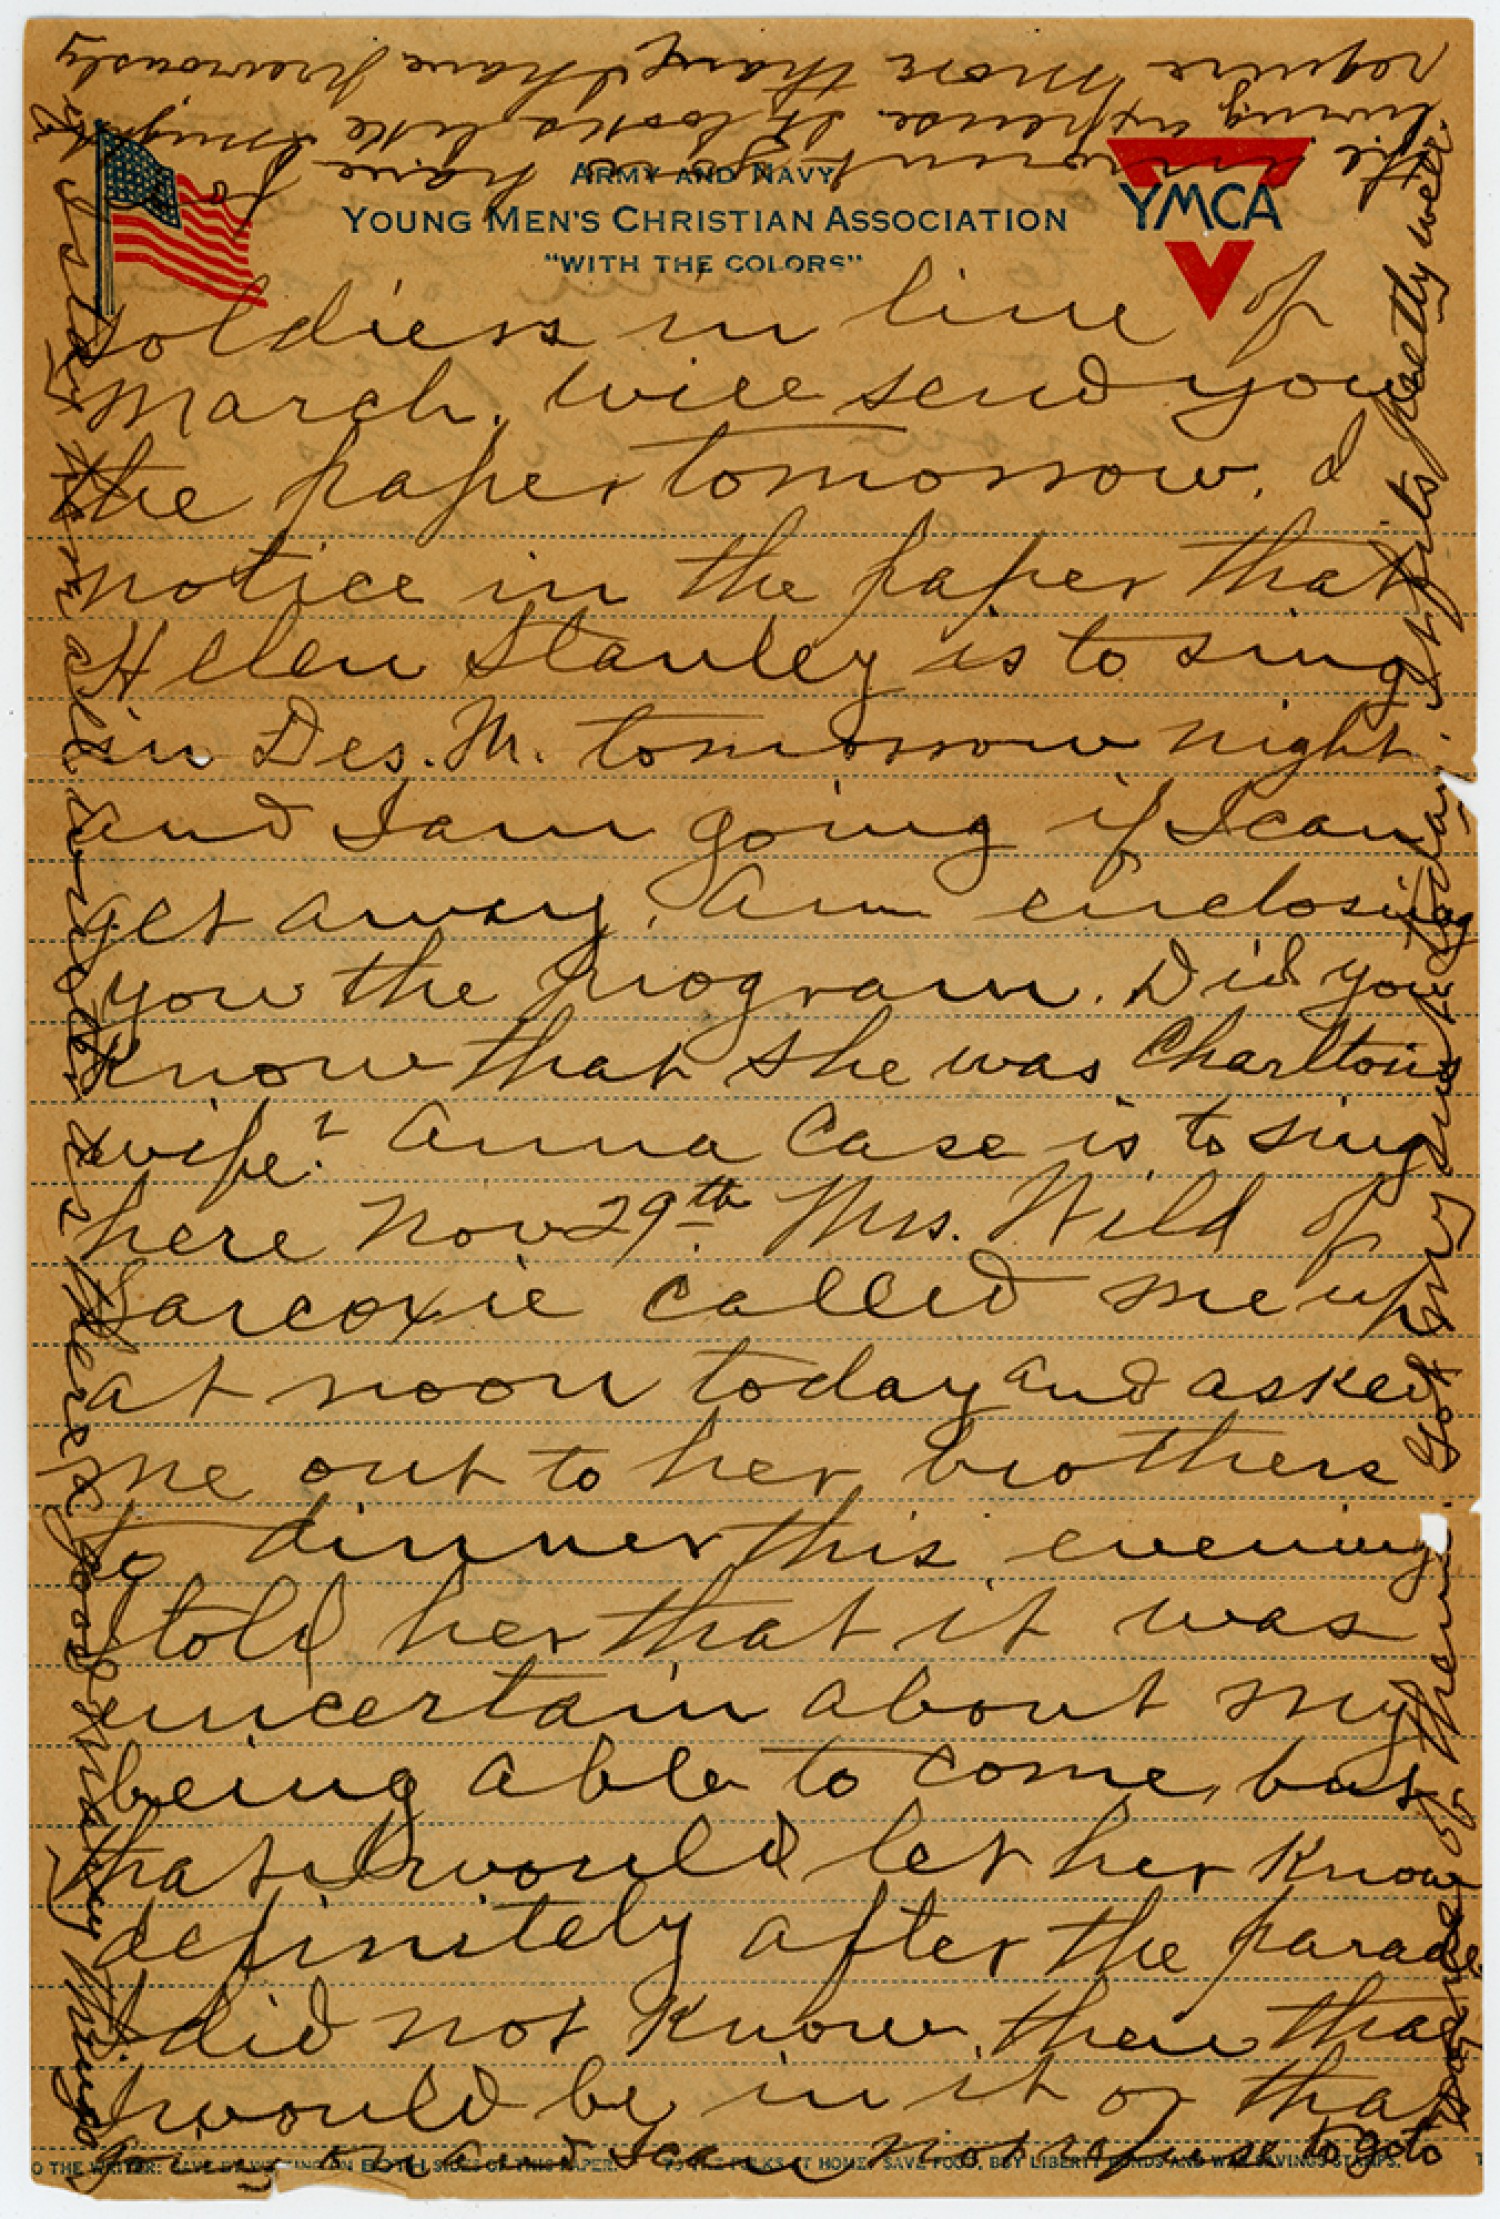 ARMY AND NAVY
YOUNG MEN'S CHRISTIAN ASSOCIATION
"WITH THE COLORS"
YMCA
soldiers in line of
March. will send you
the paper tomorrow. I
notice in the paper that
Helen Stanley is to sing
in Des. M. tomorrow night.
and I am going if I can
get away. Am enclosing
you the program. Did you
know that she was Charltons
wife? Anna Case is to sing
here Nov 29th. Mrs. Wild of
Sarcoxie called me up
at noon today and asked
me out to her brothers
to dinner this evening
I told her that it was
uncertain about my
being able to come, but
that I would let her know
definitely after the parade
I did not know then that
I would be in it or that
not refuse to go to
TO THE WRITER: SAVE BY WRITING ON BOTH SIDES OF THIS PAPER. TO THE FOLKS AT HOME: SAVE FOOD, BUY LIBERTY BONDS AND WAR SAVINGS STAMPS.
some of them. Got my suit today. It fits pretty well.
if I stay here all winter I'll need a good many things
to have
living expense It looks like I might
require more than I have previously